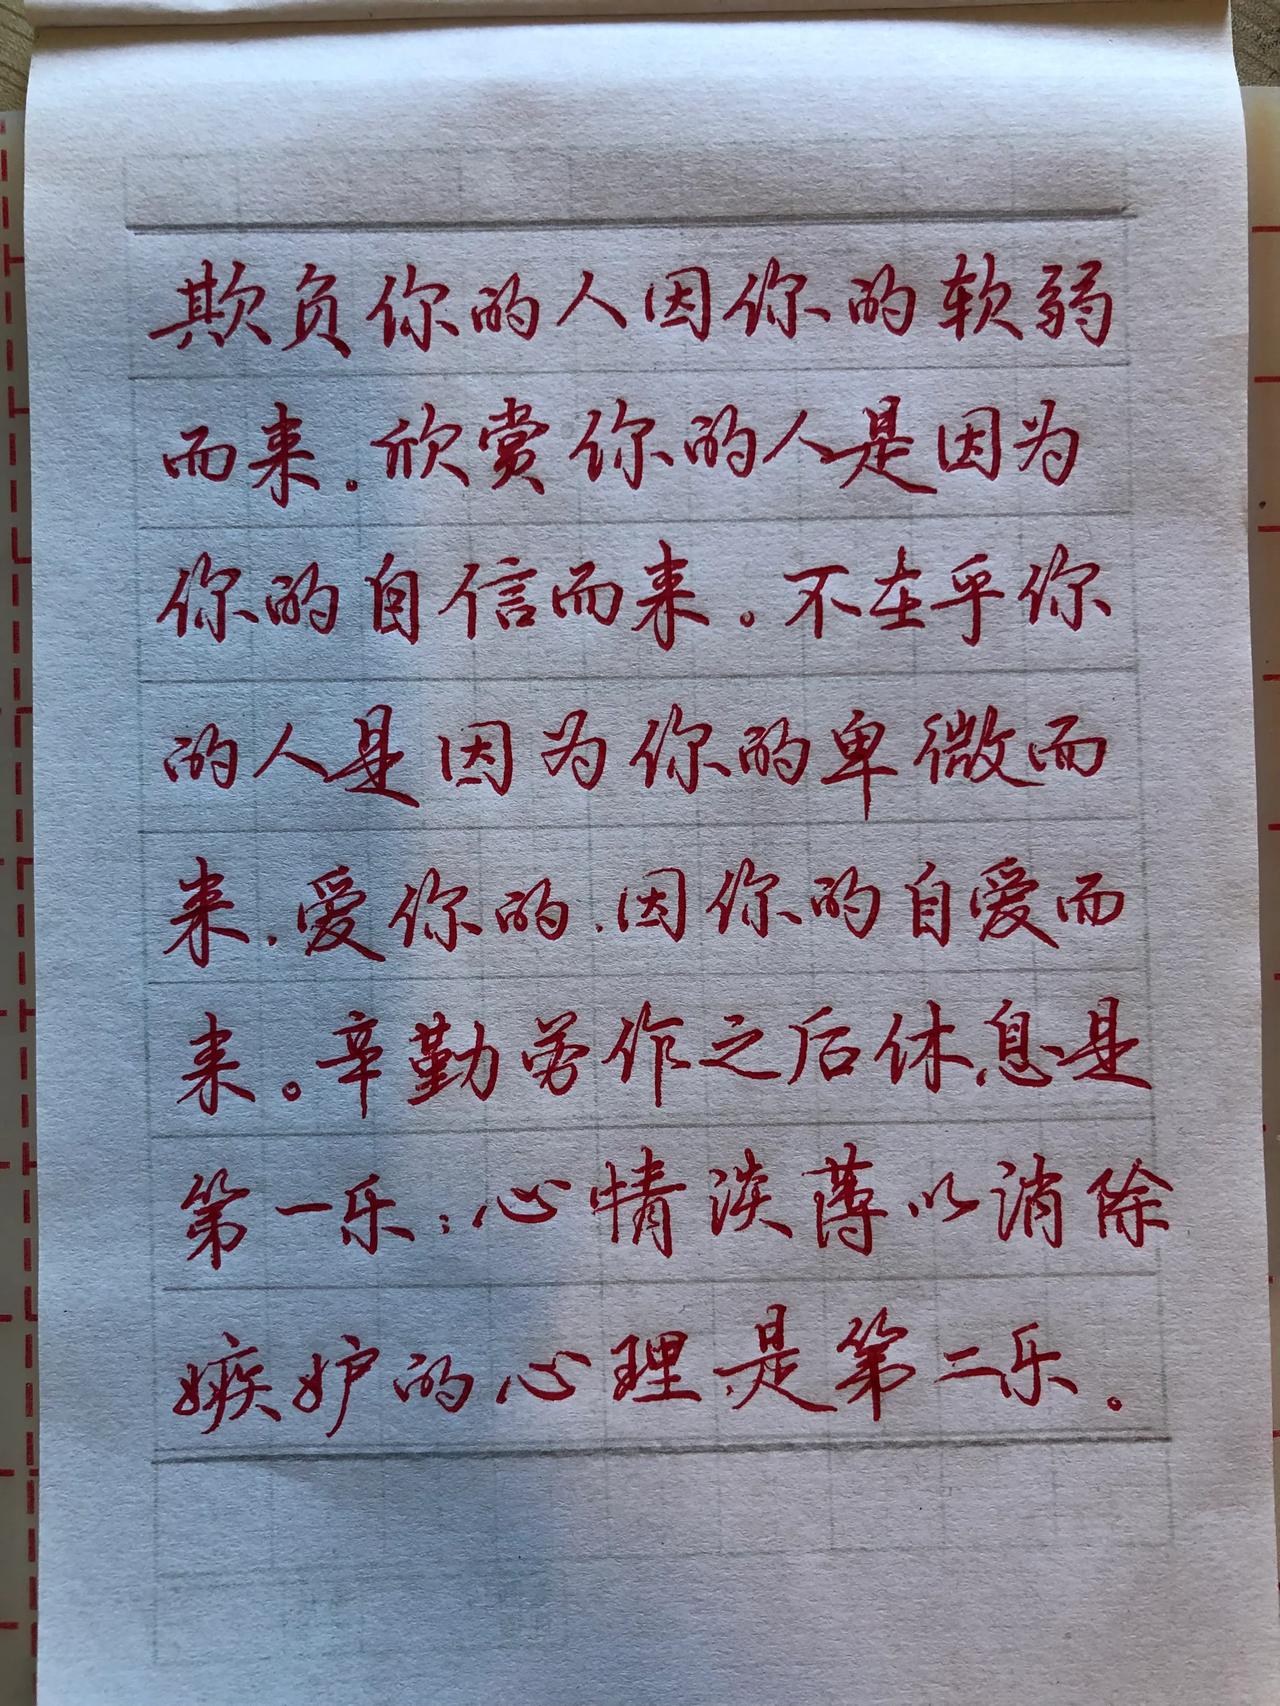 欺负你的人因你的软弱
而来．欣赏你的人是因为
你的自信而来。不在乎你
的人是因为你的卑微而
来．爱你的．因你的自爱而
来。辛勤劳作之后休息是
第一乐；心情淡薄以消除
嫉妒的心理是第二乐。